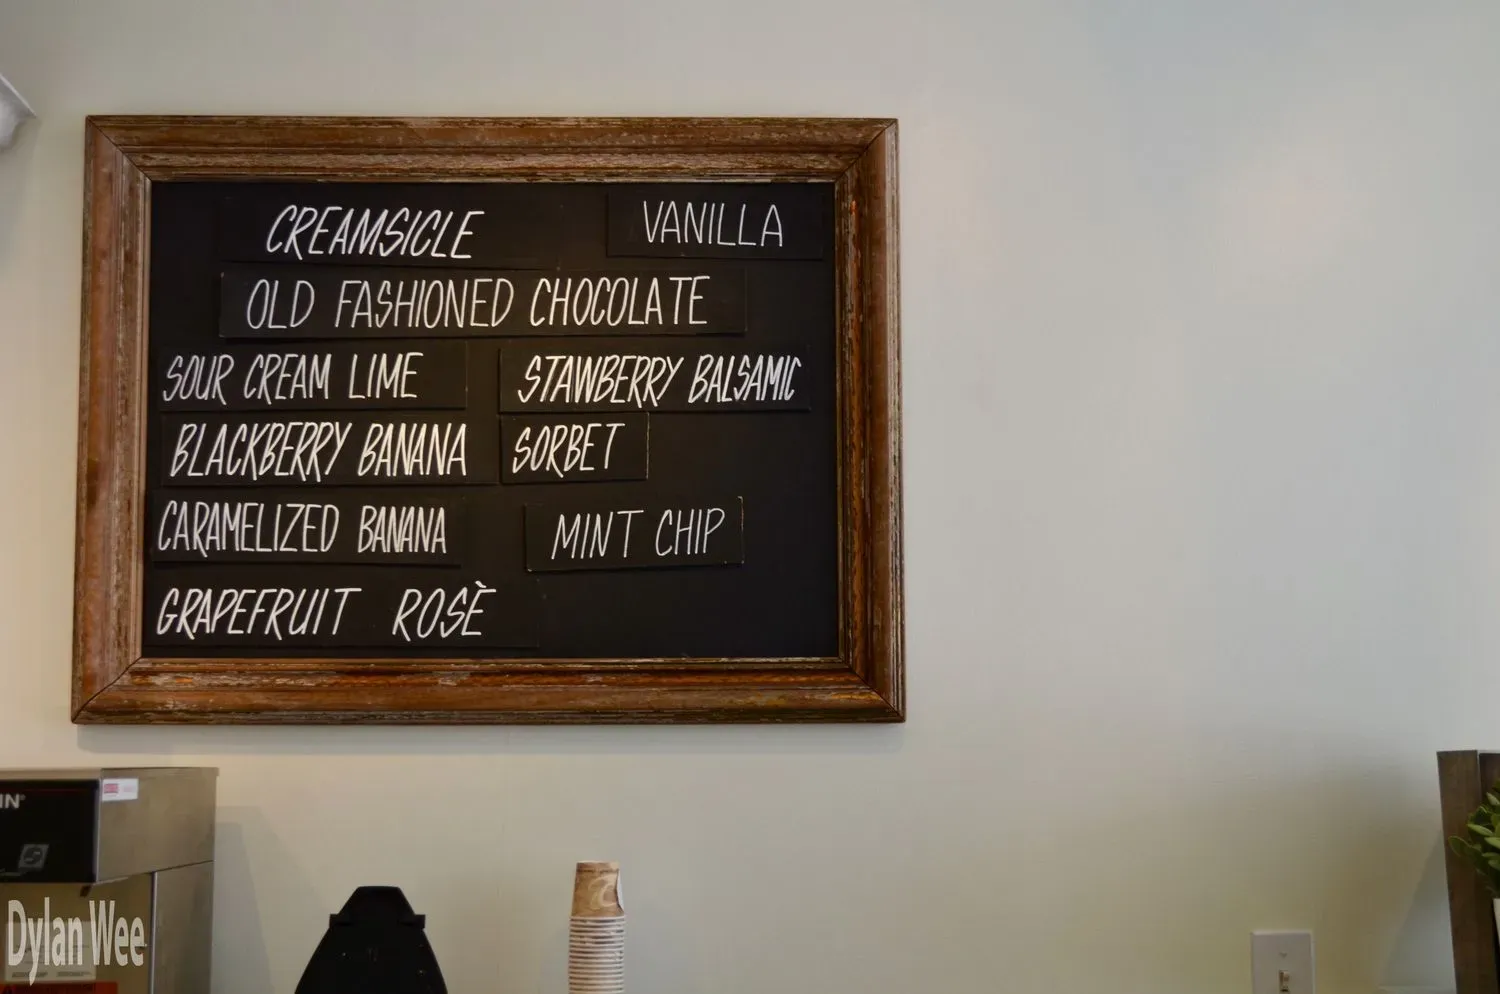 CREAMSICLE
VANILLA
OLD FASHIONED CHOCOLATE
SOUR CREAM LIME
STAWBERRY BALSAMIC
BLACKBERRY BANANA
SORBET
CARAMELIZED BANANA
MINT CHIP
GRAPEFRUIT ROSÈ
IN
Dylan Wee